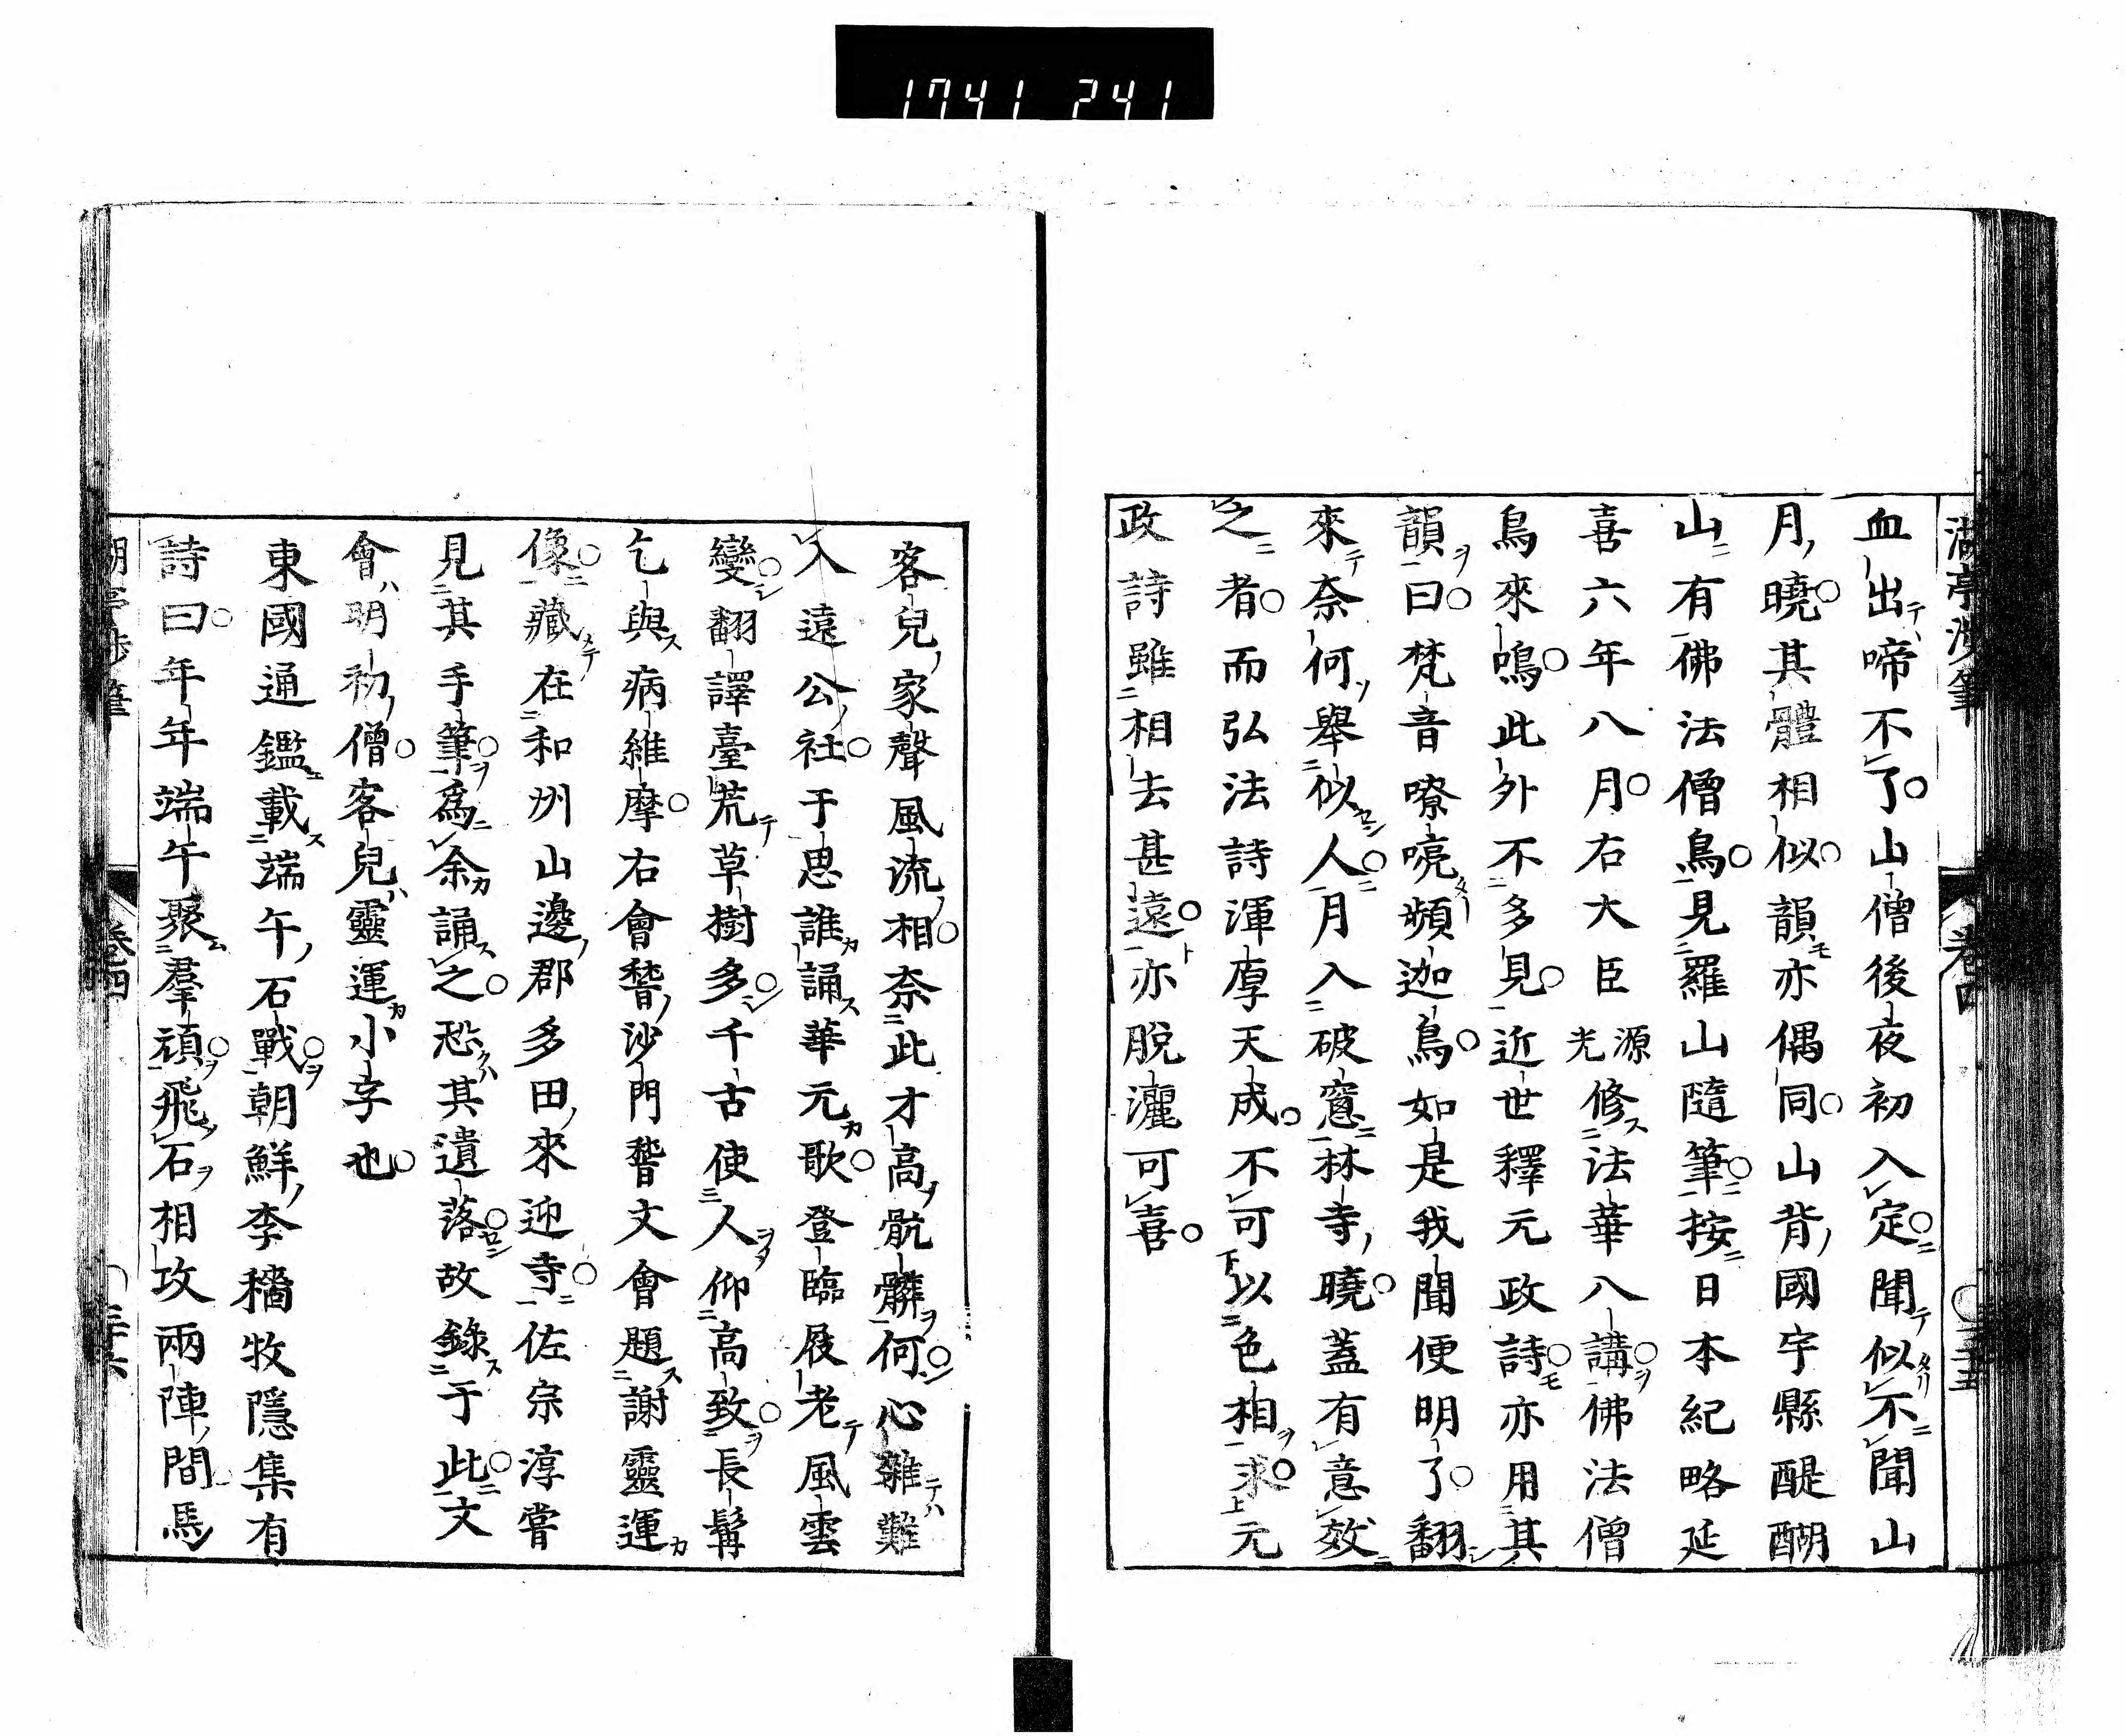 1741 241
湖亭涉筆
卷四
三十五
血出啼不了山僧後夜初入定聞似不聞山
月曉其體相似韻亦偶同山背國宇縣醍醐
山有佛法僧鳥見羅山隨筆按日本紀略延
喜六年八月右大臣源光修法華八講佛法僧
鳥來鳴此外不多見近世釋元政詩亦用其
韻曰梵音嘹喨頻迦鳥如是我聞便明了翻
來奈何舉似人人月入破窻林寺曉蓋有意效
之者而弘法詩渾厚天成不可以色相求元
政詩雖相去甚遠亦脫灑可喜
客兒家聲風流相奈此才高骯髒何心雜難
入遠公社于思誰誦華元歌登臨屐老風雲
變翻譯臺荒草樹多千古使人仰高致長髯
乞與病維摩右會嵆沙門嵆文會題謝靈運
像藏在和州山邊郡多田來迎寺佐宗淳嘗
見其手筆爲余誦之恐其遺落故錄于此文
會明初僧客兒靈運小字也
東國通鑑載端午石戰朝鮮李穡牧隱集有
詩曰年年端午聚羣頑飛石相攻兩陣間馬
卷四